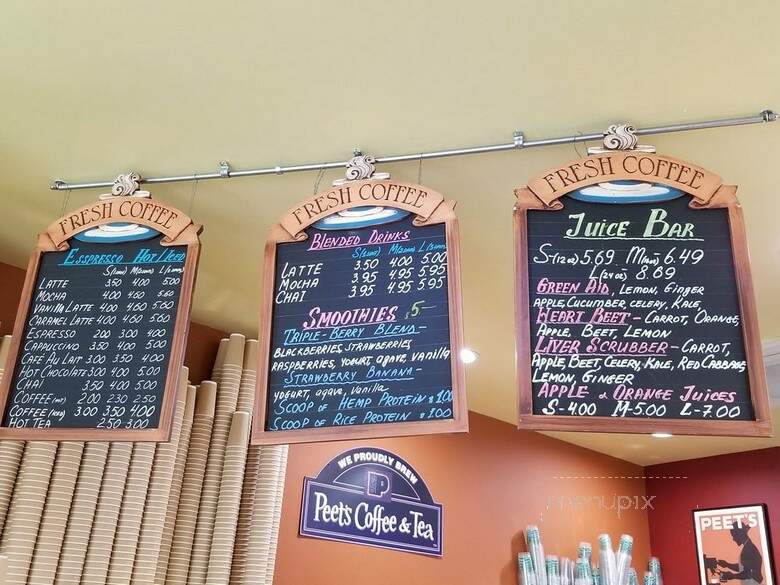 FRESH COFFEE
ESSPRESSO HOT/ICED
S(12oz) M(16oz) L(20oz)
LATTE 3.50 4.00 5.00
MOCHA 4.00 4.60 5.60
VANILLA LATTE 4.00 4.60 5.60
CARAMEL LATTE 4.00 4.60 5.60
ESPRESSO 2.00 3.00 4.00
CAPUCCINO 3.50 4.00 5.00
CAFÉ AU LAIT 3.00 3.50 4.00
HOT CHOCOLATE 3.00 4.00 5.00
CHAI 3.50 4.00 5.00
COFFEE 2.00 2.30 2.50
COFFEE 3.00 3.50 4.00
HOT TEA 2.50 3.00
FRESH COFFEE
BLENDED DRINKS
S(12oz) M(16oz) L(20oz)
LATTE 3.50 4.00 5.00
MOCHA 3.95 4.95 5.95
CHAI 3.95 4.95 5.95
SMOOTHIES 5-
TRIPLE-BERRY BLEND-
BLACKBERRIES, STRAWBERRIES
RASPBERRIES, YOGURT, agave, Vanilla
STRAWBERRY BANANA-
YOGURT, agave, Vanilla
SCOOP OF HEMP PROTEIN $1.00
SCOOP OF RICE PROTEIN $1.00
FRESH COFFEE
JUICE BAR
S(12oz) 5.69 M(16oz) 6.49
L(24oz) 8.69
GREEN AID, LEMON, GINGER
APPLE, CUCUMBER, CELERY, KALE,
HEART BEET - CARROT, ORANGE,
APPLE, BEET, LEMON
LIVER SCRUBBER - CARROT,
APPLE, BEET, CELERY, KALE, RED CABBAGE
LEMON, GINGER
APPLE & ORANGE JUICES
S-4.00 M-5.00 L-7.00
WE PROUDLY BREW
P
Peet's Coffee & Tea
menupix
PEET'S